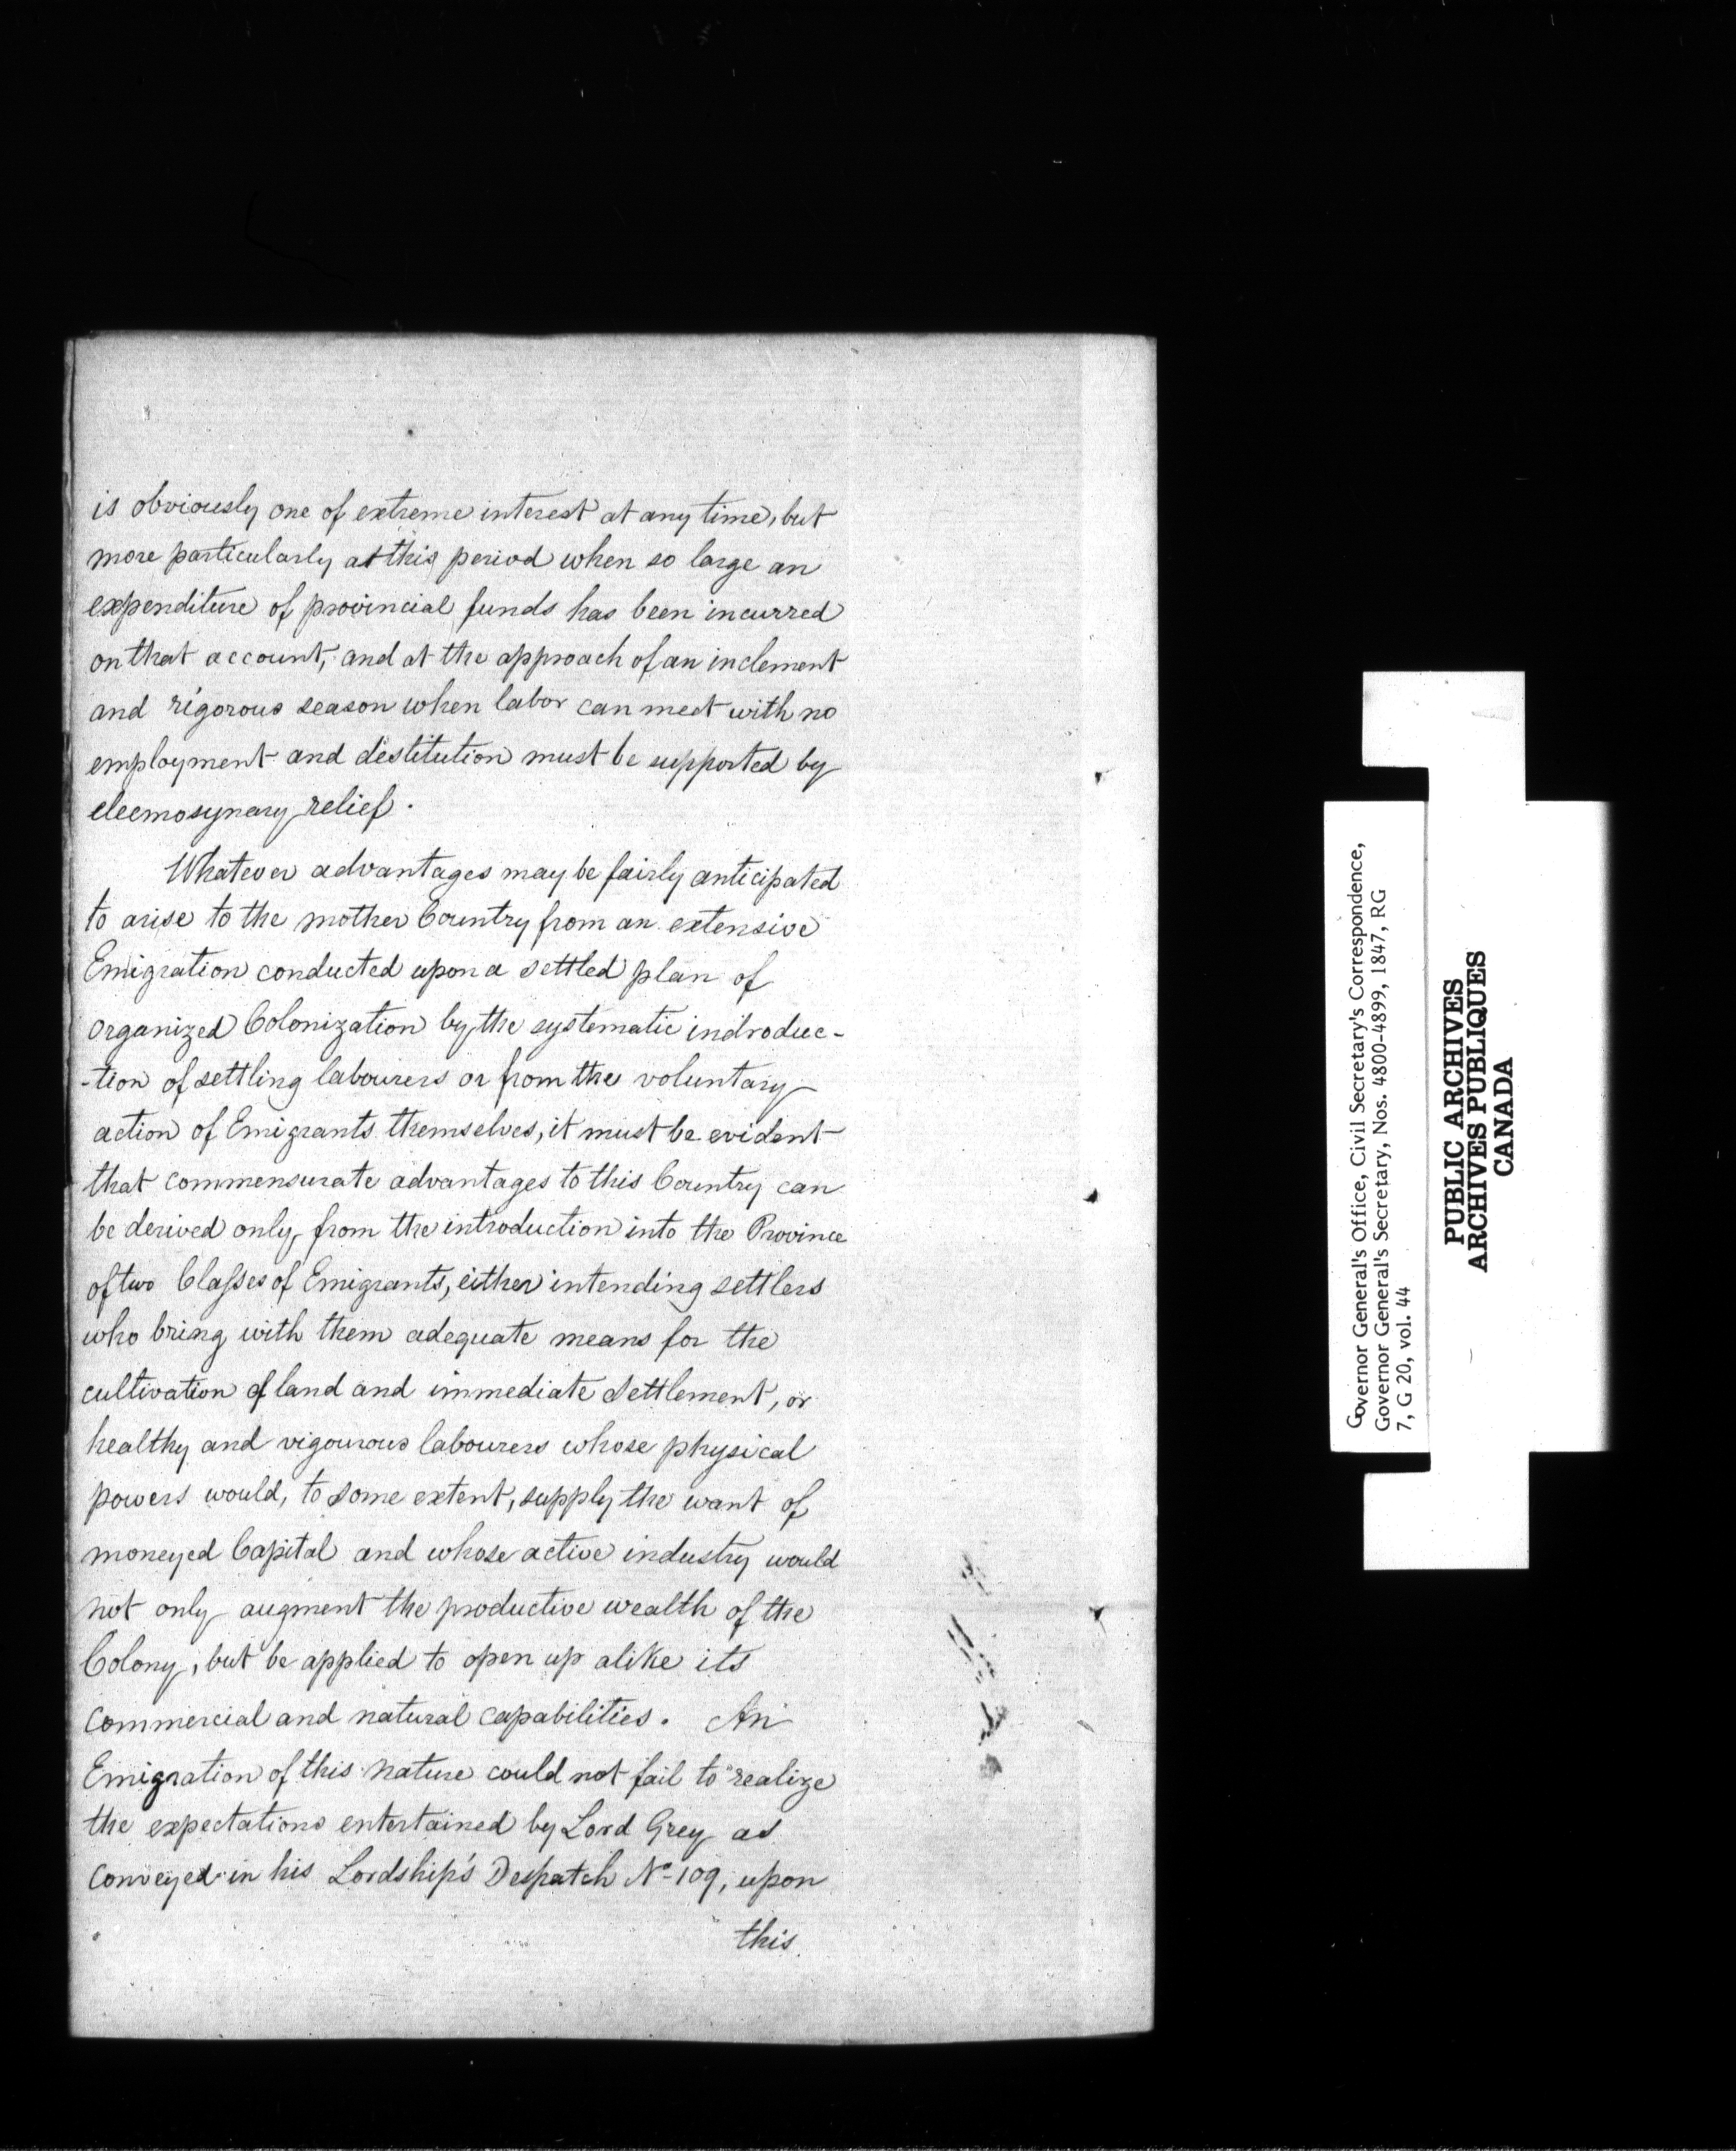 is obviously one of extreme interest at any time, but
more particularly at this period when so large an
expenditure of provincial funds has been incurred
on that account, and at the approach of an inclement
and rigorous season when labor can meet with no
employment and destitution must be supported by
eleemosynary relief.
Whatever advantages may be fairly anticipated
to arise to the mother Country from an extensive
Emigration conducted upon a settled plan of
organized Colonization by the systematic indroduc-
-tion of settling labourers or from the voluntary
action of Emigrants themselves, it must be evident
that commensurate advantages to this Country can
be derived only from the introduction into the Province
of two Classes of Emigrants, either intending settlers
who bring with them adequate means for the
cultivation of land and immediate settlement, or
healthy and vigourous labourers whose physical
powers would, to some extent, supply the want of
moneyed Capital and whose active industry would
not only augment the productive wealth of the
Colony, but be applied to open up alike its
commercial and natural capabilities. An
Emigration of this nature could not fail to realize
the expectations entertained by Lord Grey as
conveyed in his Lordship's Despatch No 109, upon
this
Governor General's Office, Civil Secretary's Correspondence,
Governor General's Secretary, Nos. 4800-4899, 1847, RG
7, G 20, vol. 44
PUBLIC ARCHIVES
ARCHIVES PUBLIQUES
CANADA